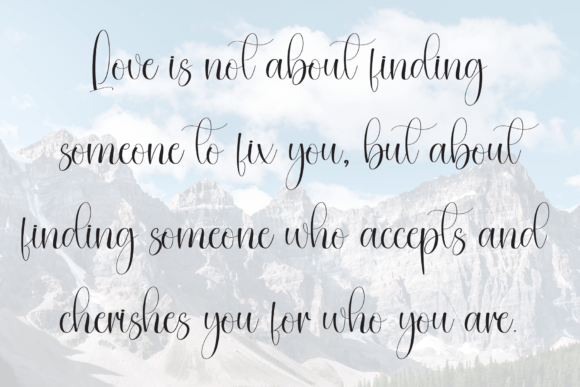 Love is not about finding
someone to fix you, but about
finding someone who accepts and
cherishes you for who you are.